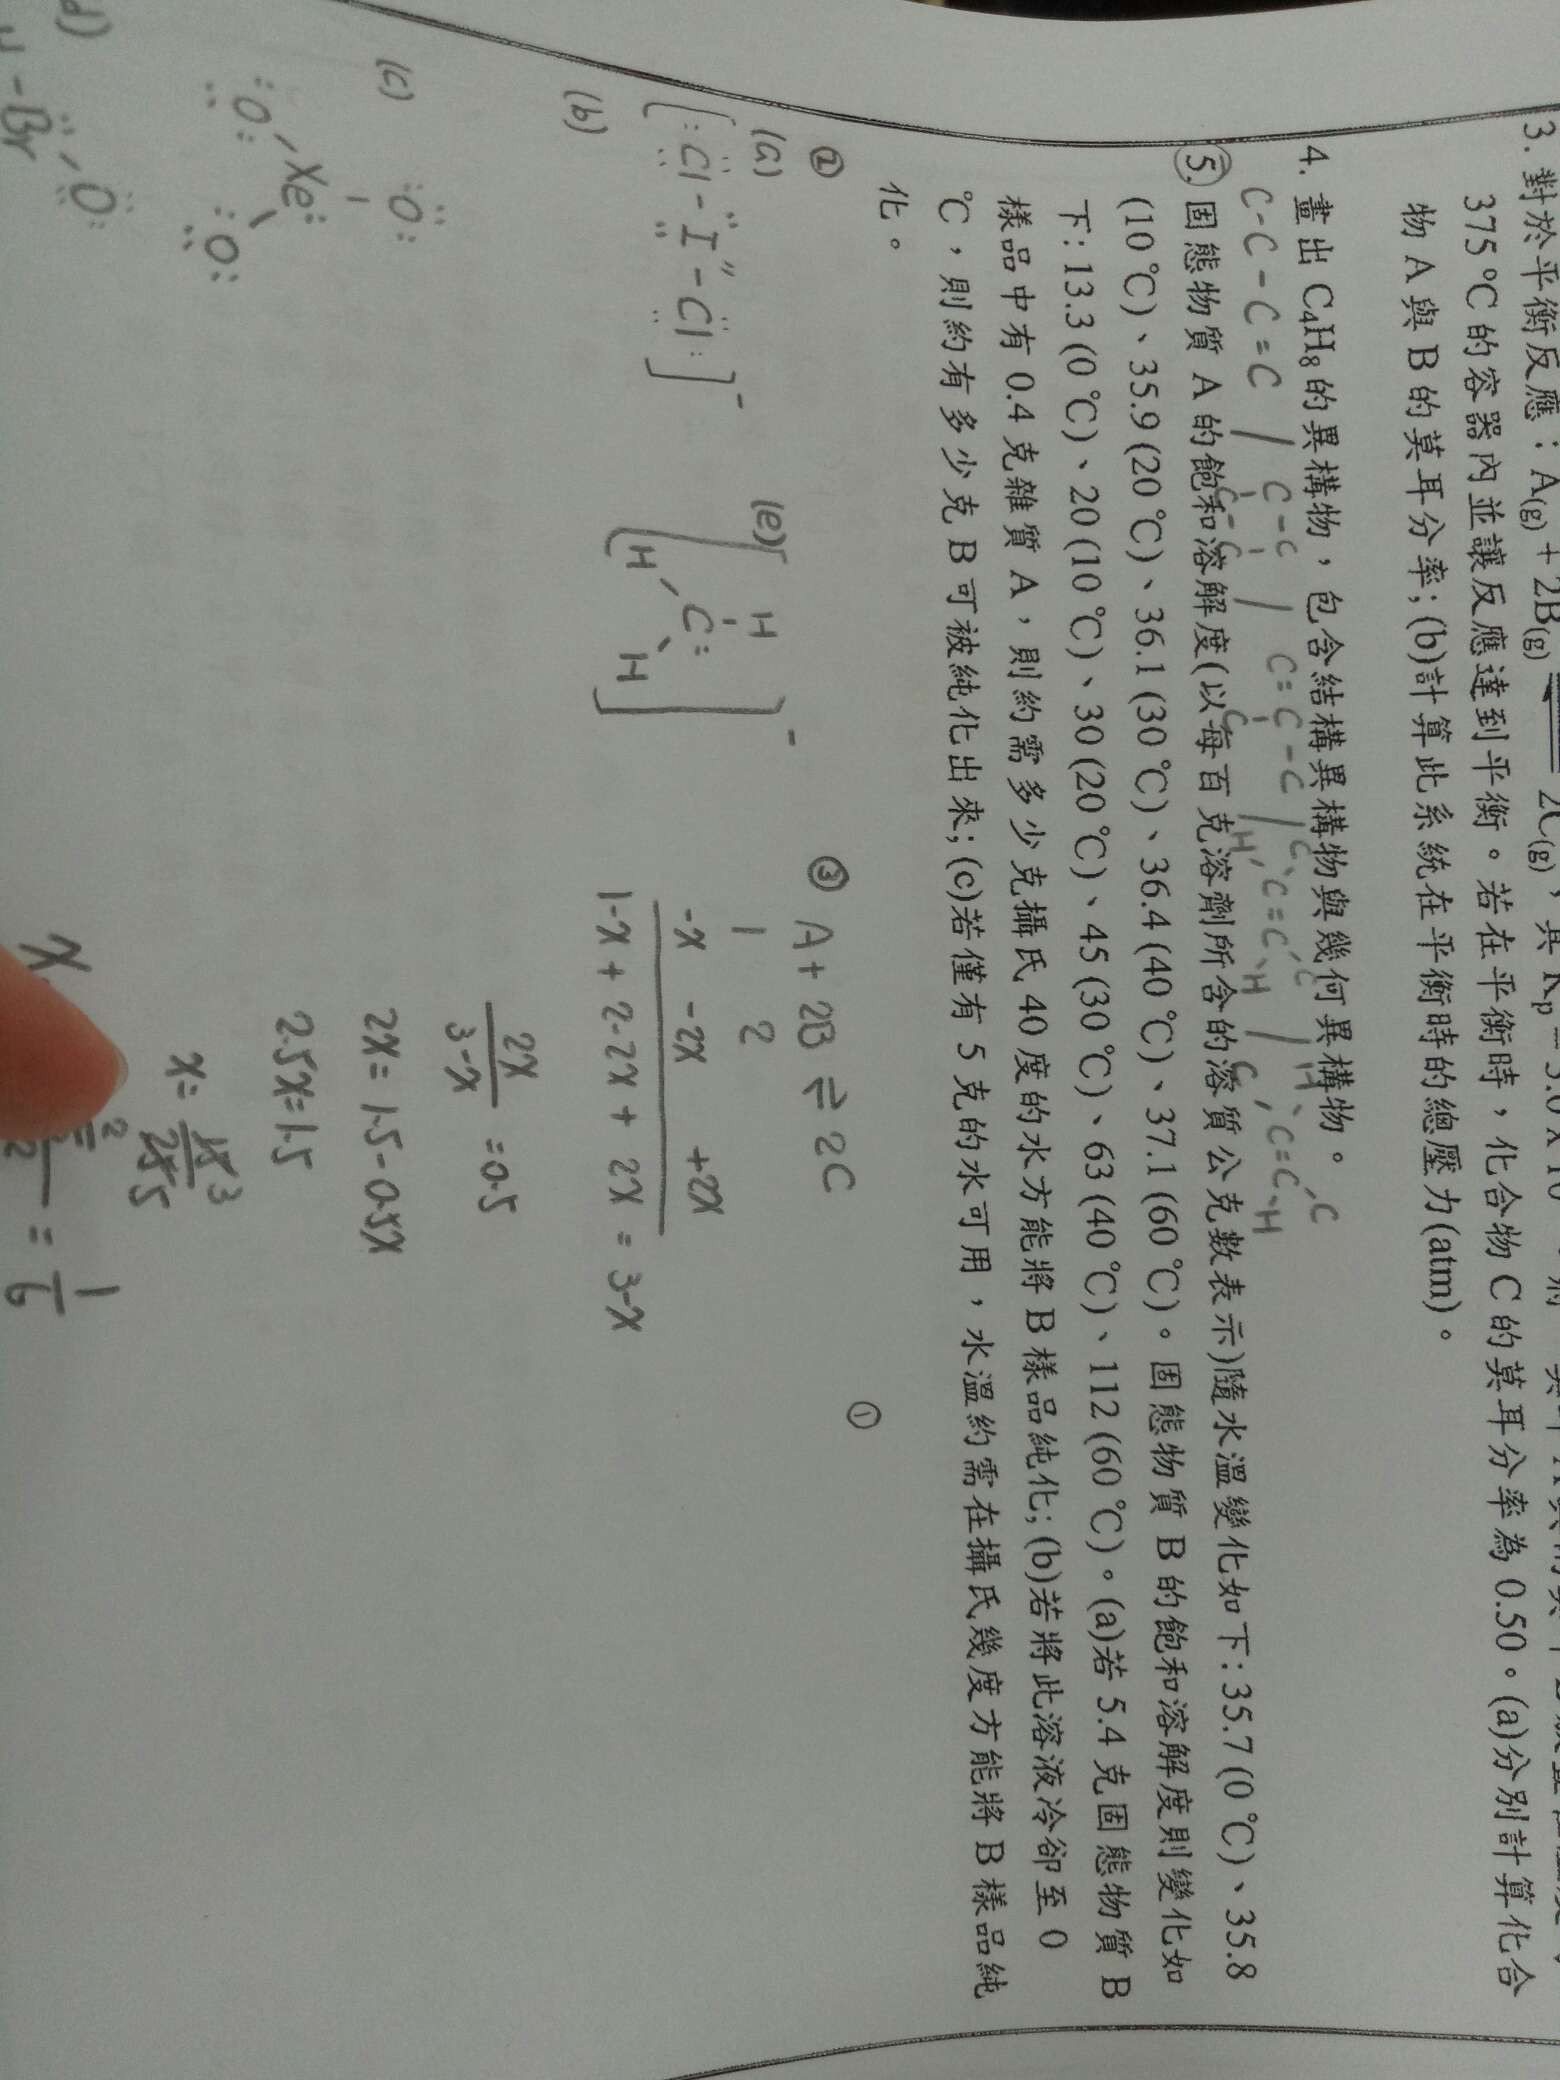 3. 對於平衡反應：A(g) + 2B(g) ⇌ 2C(g)，其 Kp
375 °C 的容器內並讓反應達到平衡。若在平衡時，化合物 C 的莫耳分率為 0.50。(a)分別計算化合
物 A 與 B 的莫耳分率; (b)計算此系統在平衡時的總壓力(atm)。
4. 畫出 C₄H₈ 的異構物，包含結構異構物與幾何異構物。
C-C-C=C / C-C / C=C-C / C C=C C / H C=C C
C-C C H H C H
⑤. 固態物質 A 的飽和溶解度(以每百克溶劑所含的溶質公克數表示)隨水溫變化如下: 35.7 (0 °C)、35.8
(10 °C)、35.9 (20 °C)、36.1 (30 °C)、36.4 (40 °C)、37.1 (60 °C)。固態物質 B 的飽和溶解度則變化如
下: 13.3 (0 °C)、20 (10 °C)、30 (20 °C)、45 (30 °C)、63 (40 °C)、112 (60 °C)。(a)若 5.4 克固態物質 B
樣品中有 0.4 克雜質 A，則約需多少克攝氏 40 度的水方能將 B 樣品純化; (b)若將此溶液冷卻至 0
°C，則約有多少克 B 可被純化出來; (c)若僅有 5 克的水可用，水溫約需在攝氏幾度方能將 B 樣品純
化。
②
(a)
[:Cl-I-Cl:]⁻
(b)
(c)
O
Xe
:O O:
d)
-Br O:
(e)
H
[H C: H]⁻
③ A + 2B ⇌ 2C
1 2
-x -2x +2x
1-x + 2-2x + 2x = 3-x
2x/3-x = 0.5
2x = 1.5-0.5x
2.5x=1.5
x= 15/25 3/5
= 1/6
①